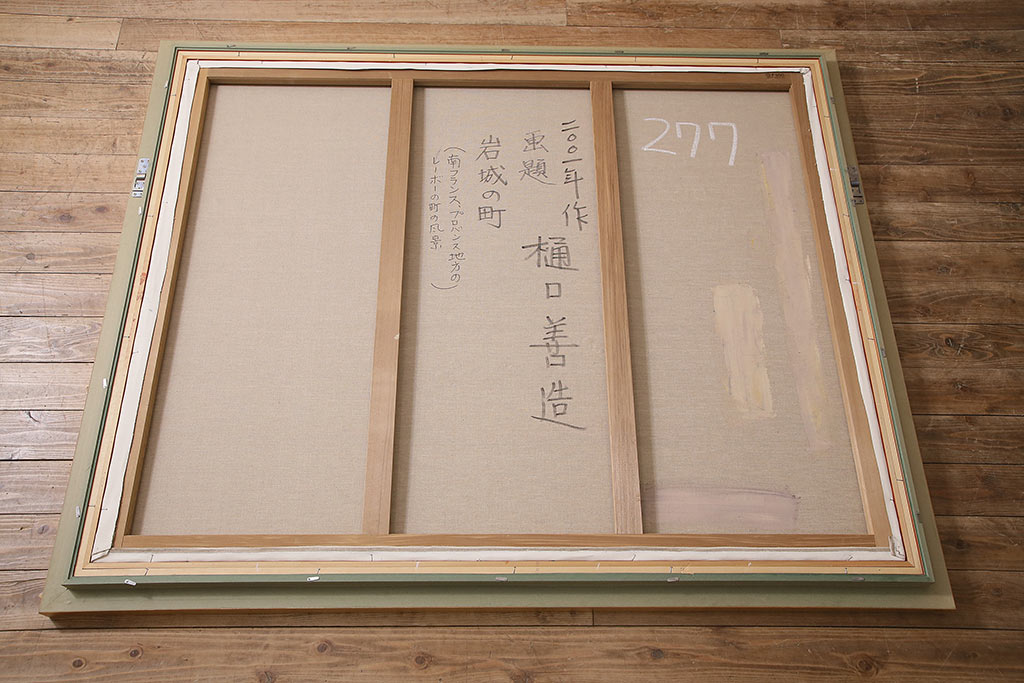 277
二〇〇一年作
樋口善造
画題
岩城の町
(南フランス、プロバンス地方の
レーボーの町の風景)